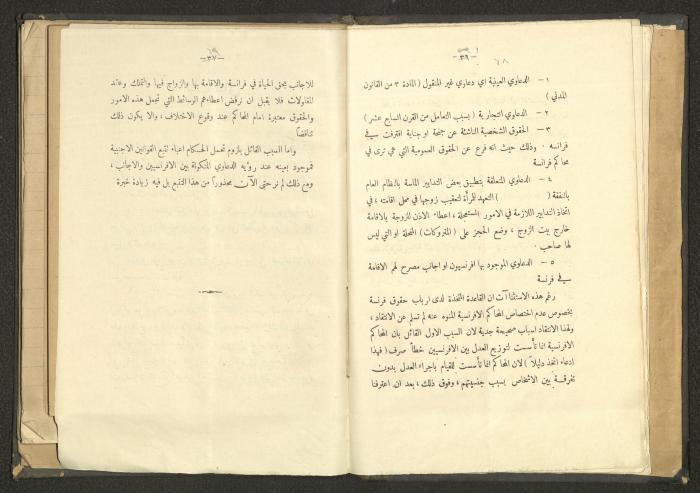 -٣٦-
١ - الدعاوي العينية اي دعاوي غير المنقول ( المادة ٣ من القانون
المدني )
٢ - الدعاوي التجارية ( بسبب التعامل من القرن السابع عشر )
٣ - الحقوق الشخصية الناشئة عن جنحة او جناية اقترفت في
فرانسه . وذلك حيث انه فرع عن الحقوق العمومية التي هي ترى في
محاكم فرانسة
٤ - الدعاوي المتعلقة بتطبيق بعض التدابير الماسة بالنظام العام
بالنفقة ( ) التعهد للمرأة لتعقيب زوجها في محل اقامته ، في
اتخاذ التدابير اللازمة في الامور المستعجلة ، اعطاء الاذن للزوجة بالاقامة
خارج بيت الزوج ، وضع الحجز على ( المتروكات ) المحلة او التي ليس
لها صاحب .
٥ - الدعاوي الموجود بها افرنسيون او اجانب مصرح لهم الاقامة
في فرنسة
رغم هذه الاستثناآت ان القاعدة المتخذة لدى ارباب حقوق فرنسة
بخصوص عدم اختصاص المحاكم الافرنسية المنوه عنه لم تسلم عن الانتقاد ،
ولهذا الانتقاد اسباب صحيحة جدية لان السبب الاول القائل بان المحاكم
الافرنسية انما تأسست لتوزيع العدل بين الافرنسيين خطأ صرف ( فهذا
ادعاء اتخذ دليلاً ) لان المحاكم انما تأسست للقيام باجراء العدل بدون
تفرقة بين الاشخاص بسبب جنسيتهم ، وفوق ذلك ، بعد ان اعترفنا
-٣٧-
للاجانب بحق الحياة في فرانسة والاقامة بها والزواج فيها والتملك وعقد
المقاولات فلا يقبل ان نرفض اعطاءهم الوسائط التي تجعل هذه الامور
والحقوق معتبرة امام المحاكم عند وقوع الاختلاف ، والا يكون ذلك
تناقضاً
واما السبب القائل بلزوم تحمل الحكام اعباء تتبع القوانين الاجنبية
فموجود بعينه عند رؤيه الدعاوي المتكونة بين الافرنسيين والاجانب ،
ومع ذلك لم نر حتى الآن محذوراً من هذا التتبع بل فيه زيادة خبرة